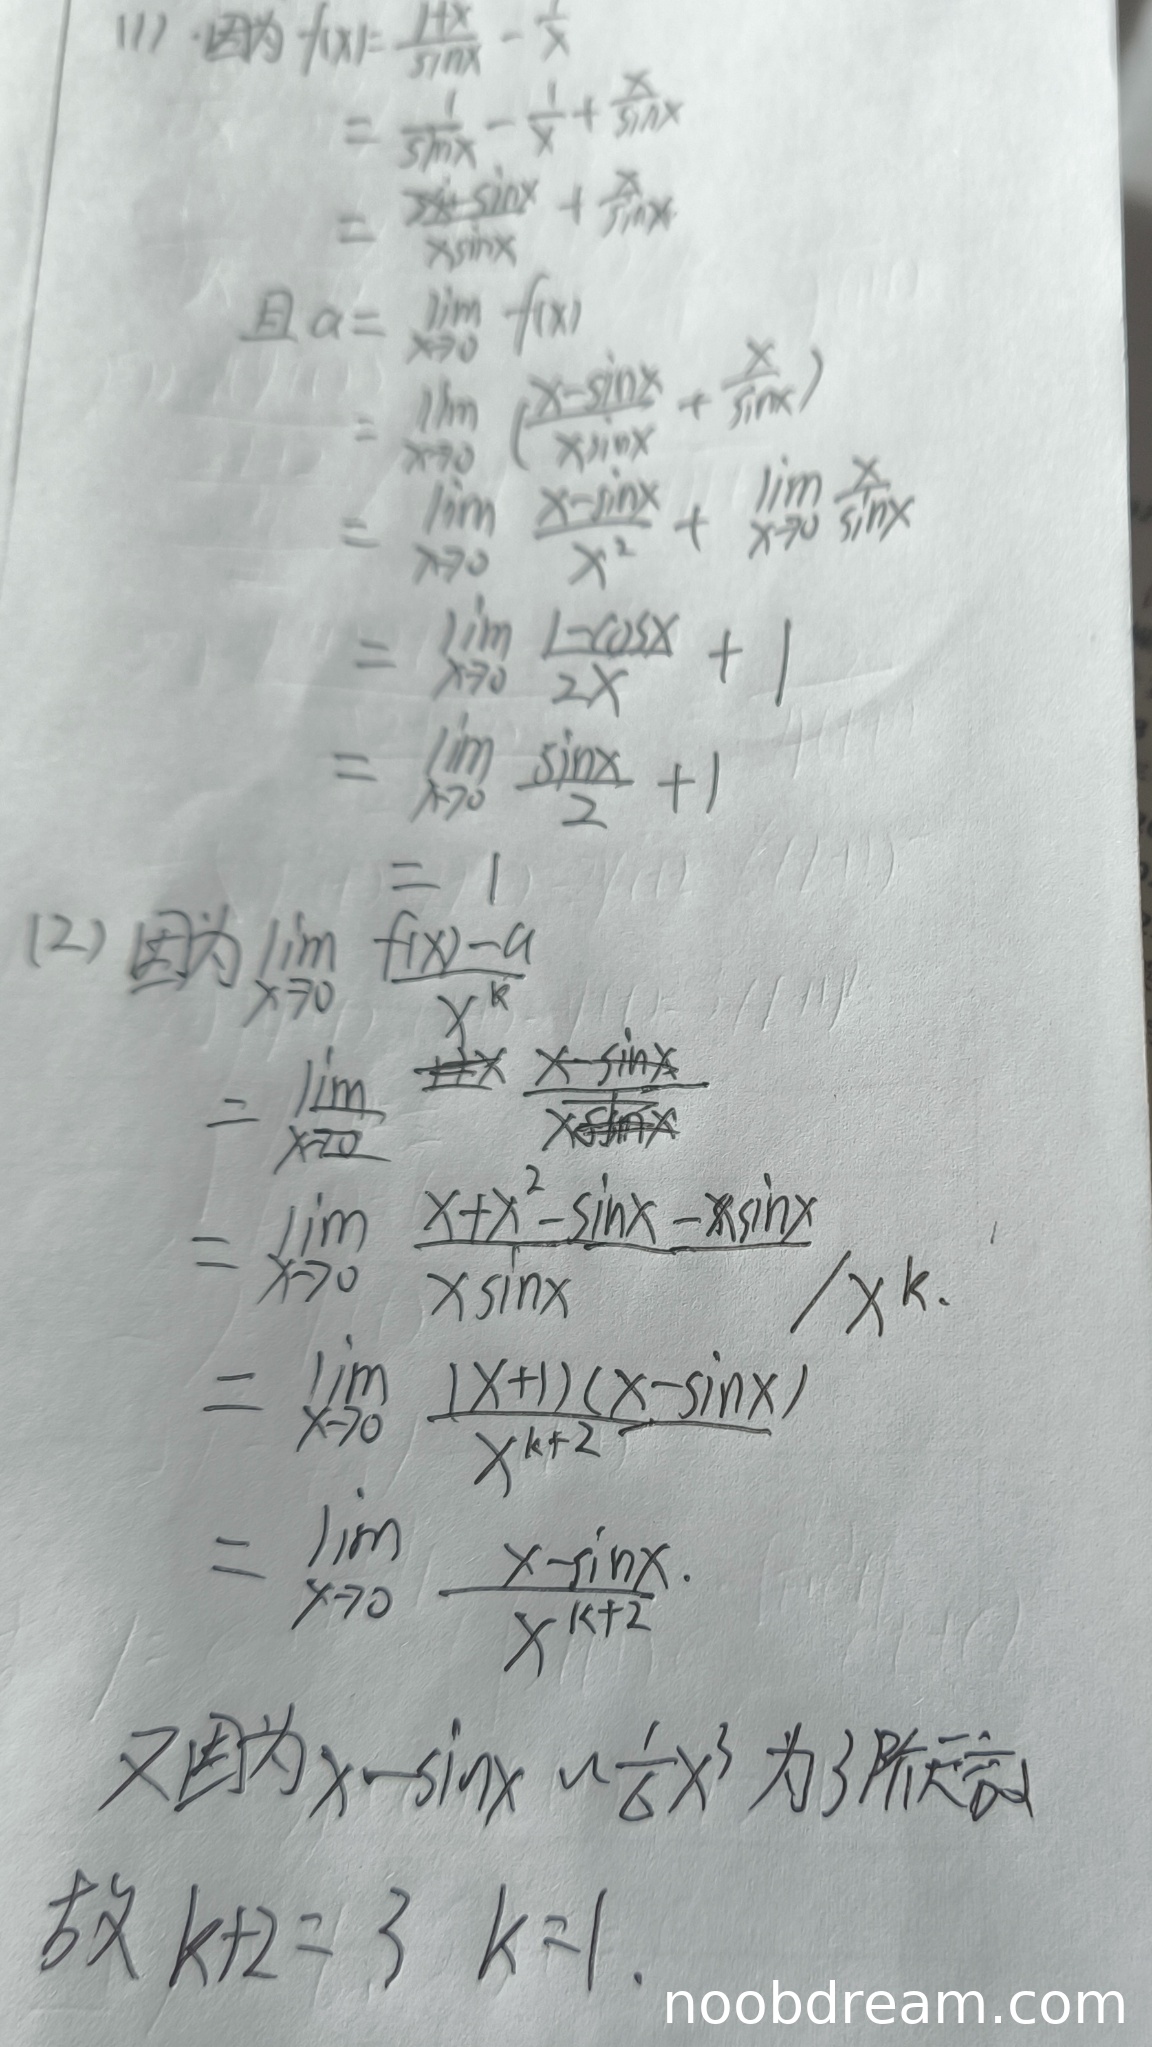 (1) 因为 f(x)= (1+x)/sinx - 1/x
= 1/sinx - 1/x + x/sinx
= (x-sinx)/(xsinx) + x/sinx
且 a = lim x→0 f(x)
= lim x→0 ((x-sinx)/(xsinx) + x/sinx)
= lim x→0 (x-sinx)/x² + lim x→0 x/sinx
= lim x→0 (1-cosx)/(2x) + 1
= lim x→0 sinx/2 + 1
= 1
(2) 因为 lim x→0 (f(x)-a)/x^k
= lim x→0
= lim x→0 (x+x²-sinx-xsinx)/(xsinx) / x^k.
= lim x→0 (x+1)(x-sinx)/x^(k+2)
= lim x→0 (x-sinx)/x^(k+2).
又因为 x-sinx ~ 1/6 x³ 为3阶无
故 k+2=3 k=1.
noobdream.com